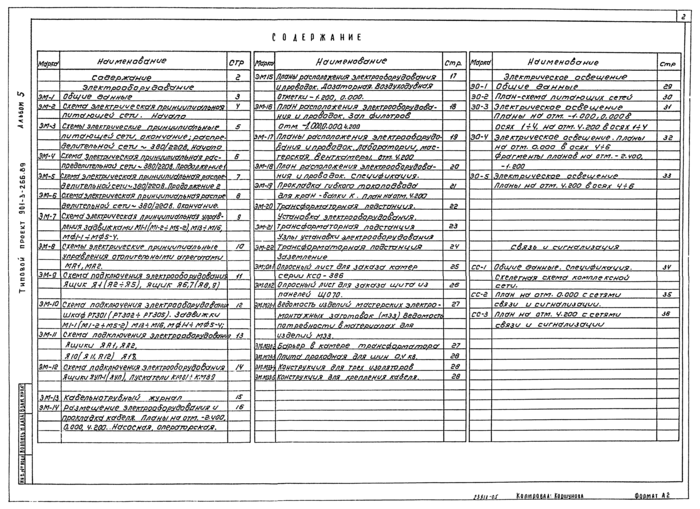 2
СОДЕРЖАНИЕ
Типовой проект 901-3-266.89
Альбом 5
Марка Наименование Стр
Содержание 2
Электрооборудование
ЭМ-1 Общие данные 3
ЭМ-2 Схема электрическая принципиальная 4
питающей сети. Начало
ЭМ-3 Схемы электрические принципиальные 5
питающей сети, окончание; распре-
делительной сети ~380/220В. Начало
ЭМ-4 Схема электрическая принципиальная рас- 6
пределительной сети ~380/220В. Продолжение 1
ЭМ-5 Схема электрическая принципиальная распре- 7
делительной сети ~380/220В. Продолжение 2
ЭМ-6 Схема электрическая принципиальная распре- 8
делительной сети ~380/220В. Окончание.
ЭМ-7 Схема электрическая принципиальная управ- 9
ления задвижками
ЭМ-8 Схемы электрические принципиальные 10
управления отопительными агрегатами
МА1, МА2.
ЭМ-9 Схема подключения электрооборудования 11
Ящик Я1 (Я2÷Я5), ящик Я6,7 (Я8,9)
ЭМ-10 Схема подключения электрооборудования 12
шкаф РТ301 (РТ302÷РТ305). Задвижки
ЭМ-11 Схема подключения электрооборудования 13
Ящики ЯА1, ЯА2,
Я10 (Я11, Я12), Я13.
ЭМ-12 Схема подключения электрооборудования 14
ЭМ-13 Кабельнотрубный журнал 15
ЭМ-14 Размещение электрооборудования и 16
прокладка кабеля. Планы на отм. -2.400,
0.000, 4.200. Насосная, операторская.
Марка Наименование Стр.
ЭМ-15 Планы расположения электрооборудования 17
и проводок. Дозаторная. Воздуходувная
Отметки -1.200, 0.000.
ЭМ-16 План расположения электрооборудова- 18
ния и проводок, Зал фильтров
ЭМ-17 Планы расположения электрооборудо- 19
вания и проводок. Лаборатории, мас-
терская. Венткамеры. отм. 4.200
ЭМ-18 План расположения электрооборудова- 20
ния и проводок. Спецификация.
ЭМ-19 Прокладка гибкого токоподвода 21
для кран-балки К. План на отм. 4.200
ЭМ-20 Трансформаторная подстанция. 22
Установка электрооборудования.
ЭМ-21 Трансформаторная подстанция 23
Узлы установки электрооборудования
ЭМ-22 Трансформаторная подстанция 24
Заземление
Опросный лист для заказа камер 25
серии КСО-386
Опросный лист для заказа щита из 26
панелей ЩО70.
Ведомость изделий мастерских электро- 27
монтажных заготовок (МЭЗ) Ведомость
потребности в материалах для
изделий МЭЗ.
Барьер в камере трансформатора 27
Плита проходная для шин 0,4 кв. 28
Конструкция для трех изоляторов 28
Конструкция для крепления кабеля. 28
Марка Наименование Стр
Электрическое освещение
ЭО-1 Общие данные 29
ЭО-2 План-схема питающих сетей 30
ЭО-3 Электрическое освещение 31
Планы на отм. -1.000, 0.000 в
осях 1÷4, на отм. 4.200 в осях 1÷4
ЭО-4 Электрическое освещение. Планы 32
на отм. 0.000 в осях 4÷6
Фрагменты планов на отм. -2.400,
-1.200
ЭО-5 Электрическое освещение 33
Планы на отм. 4.200 в осях 4÷6
Связь и сигнализация
СС-1 Общие данные. Спецификация. 34
Скелетная схема комплексной
сети.
СС-2 План на отм. 0.000 с сетями 35
связи и сигнализации.
СС-3 План на отм. 4.200 с сетями 36
связи и сигнализации
Копировал: Коршунова Формат А2